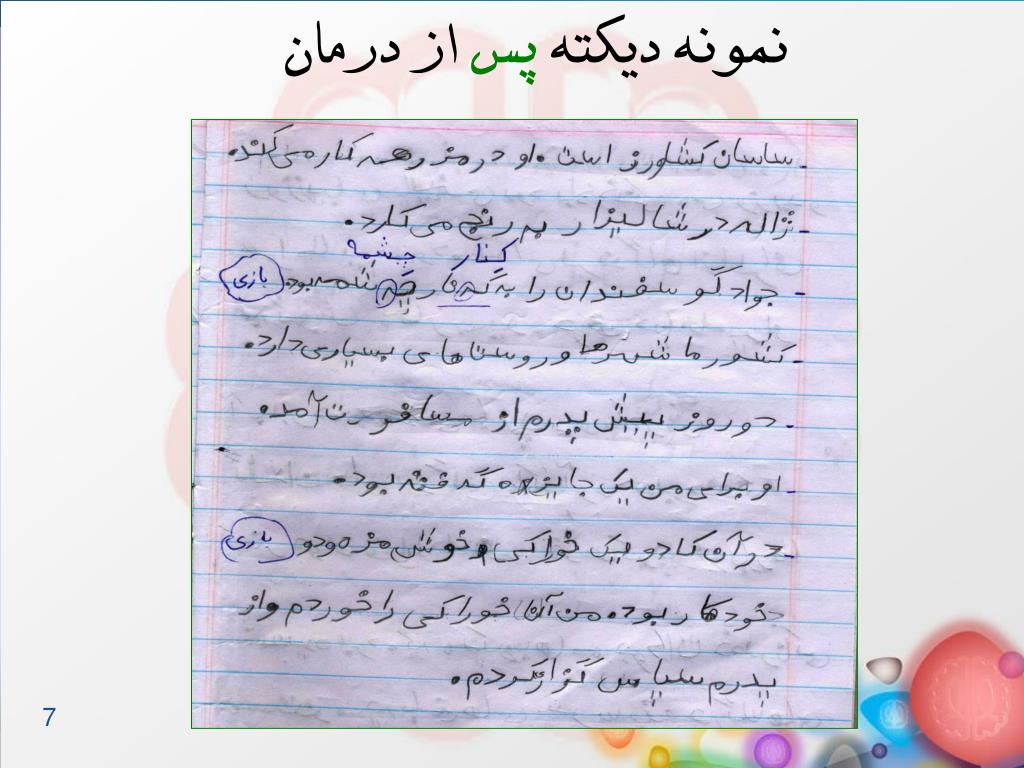 نمونه دیکته پس از درمان
- ساسان کشاورز است. او در مزرعه کار می‌کند.
- ژاله در شالیزار به رنج می‌کارد.
کنار چشمه
- جواد گوسفندان را به کنار چشمه بود. بازی
- کشور ما شهرها و روستاهای بسیاری دارد.
- دو روز پیش پدرم از مسافرت آمد.
- او برای من یک جایزه گرفته بود.
- در آن کادو یک خوراکی خوش‌مزه و دو بازی
خودکار بود. من آن خوراکی را خوردم و از
پدرم سپاس‌گزاری کردم.
7